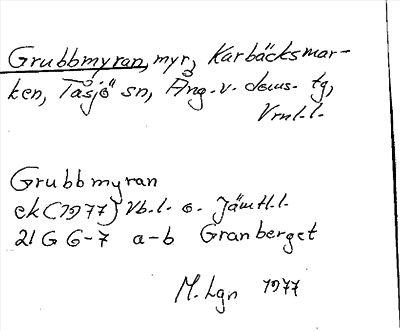 Grubbmyran, myr, Karbäcksmar-
ken, Tåsjö sn, Ång. v. doms. tg,
Vrnl.l.
Grubbmyran
ek (1977) Vb.l. o. Jämtl.l.
21 G 6-7 a-b Granberget
M. Lgn 1977